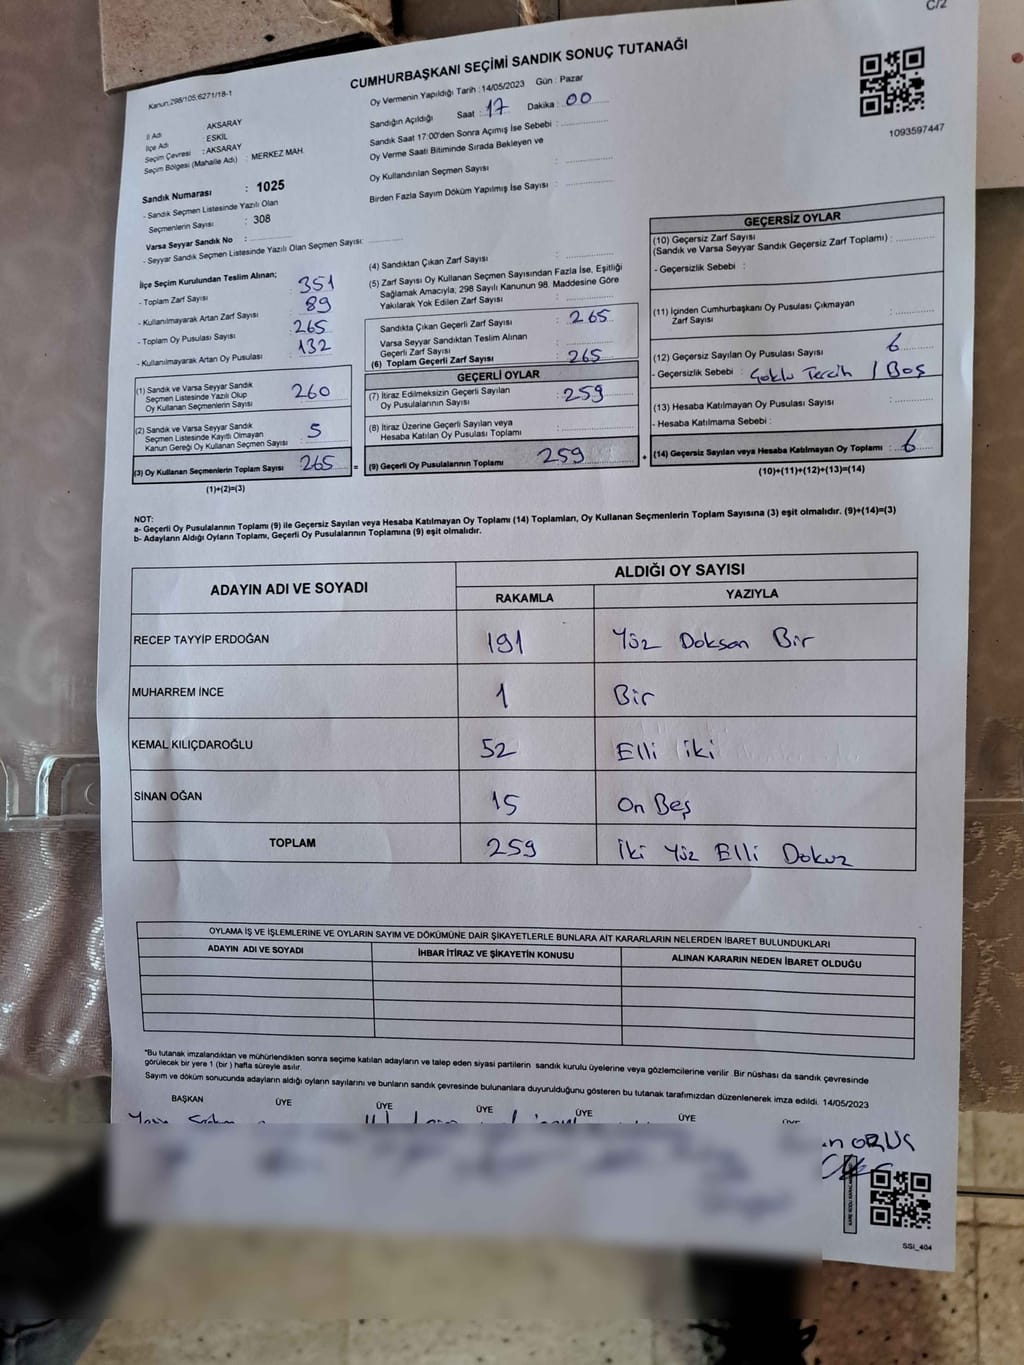 C/2
CUMHURBAŞKANI SEÇİMİ SANDIK SONUÇ TUTANAĞI
Kanun,298/105,6271/18-1
Oy Vermenin Yapıldığı Tarih :14/05/2023 Gün : Pazar
Sandığın Açıldığı Saat : 17 Dakika : 00
Sandık Saat 17:00'den Sonra Açımış İse Sebebi :
Oy Verme Saati Bitiminde Sırada Bekleyen ve
Oy Kullandırılan Seçmen Sayısı :
Birden Fazla Sayım Döküm Yapılmış İse Sayısı :
1093597447
İl Adı : AKSARAY
İlçe Adı : ESKİL
Seçim Çevresi : AKSARAY
Seçim Bölgesi (Mahalle Adı) : MERKEZ MAH.
Sandık Numarası : 1025
- Sandık Seçmen Listesinde Yazılı Olan
Seçmenlerin Sayısı : 308
Varsa Seyyar Sandık No :
- Seyyar Sandık Seçmen Listesinde Yazılı Olan Seçmen Sayısı:
İlçe Seçim Kurulundan Teslim Alınan;
- Toplam Zarf Sayısı : 351
- Kullanılmayarak Artan Zarf Sayısı : 89
- Toplam Oy Pusulası Sayısı : 265
- Kullanılmayarak Artan Oy Pusulası : 132
(1) Sandık ve Varsa Seyyar Sandık
Seçmen Listesinde Yazılı Olup
Oy Kullanan Seçmenlerin Sayısı : 260
(2) Sandık ve Varsa Seyyar Sandık
Seçmen Listesinde Kayıtlı Olmayan
Kanun Gereği Oy Kullanan Seçmen Sayısı : 5
(3) Oy Kullanan Seçmenlerin Toplam Sayısı : 265 =
(1)+(2)=(3)
(4) Sandıktan Çıkan Zarf Sayısı :
(5) Zarf Sayısı Oy Kullanan Seçmen Sayısından Fazla İse, Eşitliği
Sağlamak Amacıyla, 298 Sayılı Kanunun 98. Maddesine Göre
Yakılarak Yok Edilen Zarf Sayısı :
Sandıkta Çıkan Geçerli Zarf Sayısı : 265
Varsa Seyyar Sandıktan Teslim Alınan
Geçerli Zarf Sayısı :
(6) Toplam Geçerli Zarf Sayısı : 265
GEÇERLİ OYLAR
(7) İtiraz Edilmeksizin Geçerli Sayılan
Oy Pusulalarının Sayısı : 259
(8) İtiraz Üzerine Geçerli Sayılan veya
Hesaba Katılan Oy Pusulası Toplamı :
(9) Geçerli Oy Pusulalarının Toplamı : 259 +
GEÇERSİZ OYLAR
(10) Geçersiz Zarf Sayısı
(Sandık ve Varsa Seyyar Sandık Geçersiz Zarf Toplamı) :
- Geçersizlik Sebebi :
(11) İçinden Cumhurbaşkanı Oy Pusulası Çıkmayan
Zarf Sayısı :
(12) Geçersiz Sayılan Oy Pusulası Sayısı : 6
- Geçersizlik Sebebi : Çoklu Tercih / Boş
(13) Hesaba Katılmayan Oy Pusulası Sayısı :
- Hesaba Katılmama Sebebi :
(14) Geçersiz Sayılan veya Hesaba Katılmayan Oy Toplamı : 6
(10)+(11)+(12)+(13)=(14)
NOT:
a- Geçerli Oy Pusulalarının Toplamı (9) ile Geçersiz Sayılan veya Hesaba Katılmayan Oy Toplamı (14) Toplamları, Oy Kullanan Seçmenlerin Toplam Sayısına (3) eşit olmalıdır. (9)+(14)=(3)
b- Adayların Aldığı Oyların Toplamı, Geçerli Oy Pusulalarının Toplamına (9) eşit olmalıdır.
ADAYIN ADI VE SOYADI ALDIĞI OY SAYISI
RAKAMLA YAZIYLA
RECEP TAYYİP ERDOĞAN 191 Yüz Doksan Bir
MUHARREM İNCE 1 Bir
KEMAL KILIÇDAROĞLU 52 Elli iki
SİNAN OĞAN 15 On Beş
TOPLAM 259 İki Yüz Elli Dokuz
OYLAMA İŞ VE İŞLEMLERİNE VE OYLARIN SAYIM VE DÖKÜMÜNE DAİR ŞİKAYETLERLE BUNLARA AİT KARARLARIN NELERDEN İBARET BULUNDUKLARI
ADAYIN ADI VE SOYADI İHBAR İTİRAZ VE ŞİKAYETİN KONUSU ALINAN KARARIN NEDEN İBARET OLDUĞU
*Bu tutanak imzalandıktan ve mühürlendikten sonra seçime katılan adayların ve talep eden siyasi partilerin sandık kurulu üyelerine veya gözlemcilerine verilir. Bir nüshası da sandık çevresinde
görülecek bir yere 1 (bir) hafta süreyle asılır.
Sayım ve döküm sonucunda adayların aldığı oyların sayılarını ve bunların sandık çevresinde bulunanlara duyurulduğunu gösteren bu tutanak tarafımızdan düzenlenerek imza edildi. 14/05/2023
BAŞKAN ÜYE ÜYE ÜYE ÜYE ÜYE ÜYE
ORUÇ
SSI_404